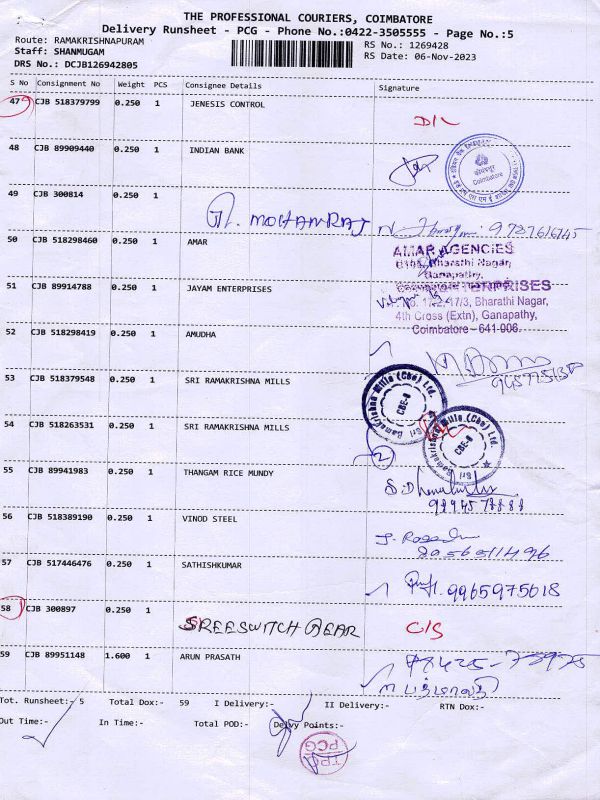 THE PROFESSIONAL COURIERS, COIMBATORE
Delivery Runsheet - PCG - Phone No.:0422-3505555 - Page No.:5
Route: RAMAKRISHNAPURAM
Staff: SHANMUGAM
DRS No.: DCJB126942805
RS No.: 1269428
RS Date: 06-Nov-2023
S No Consignment No Weight PCS Consignee Details Signature
47 CJB 518379799 0.250 1 JENESIS CONTROL D/L
48 CJB 89909440 0.250 1 INDIAN BANK
Coimbatore
49 CJB 300814 0.250 1 MOHANRAJ
50 CJB 518298460 0.250 1 AMAR
AMAR AGENCIES
Bharathi Nagar,
Ganapathy,
51 CJB 89914788 0.250 1 JAYAM ENTERPRISES
ENTERPRISES
Bharathi Nagar,
4th Cross (Extn), Ganapathy,
Coimbatore - 641 006.
52 CJB 518298419 0.250 1 AMUDHA
53 CJB 518379548 0.250 1 SRI RAMAKRISHNA MILLS
Sri Ramakrishna Mills (Cbe) Ltd.
CBE-6
54 CJB 518263531 0.250 1 SRI RAMAKRISHNA MILLS
Sri Ramakrishna Mills (Cbe) Ltd.
CBE-6
2
55 CJB 89941983 0.250 1 THANGAM RICE MUNDY
56 CJB 518389190 0.250 1 VINOD STEEL
57 CJB 517446476 0.250 1 SATHISHKUMAR
9965975618
58 CJB 300897 0.250 1 SREESWITCH GEAR C/S
59 CJB 89951148 1.600 1 ARUN PRASATH
Tot. Runsheet:- 5 Total Dox:- 59 I Delivery:- II Delivery:- RTN Dox:-
Out Time:- In Time:- Total POD:- Delvy Points:-
TPC
PCG